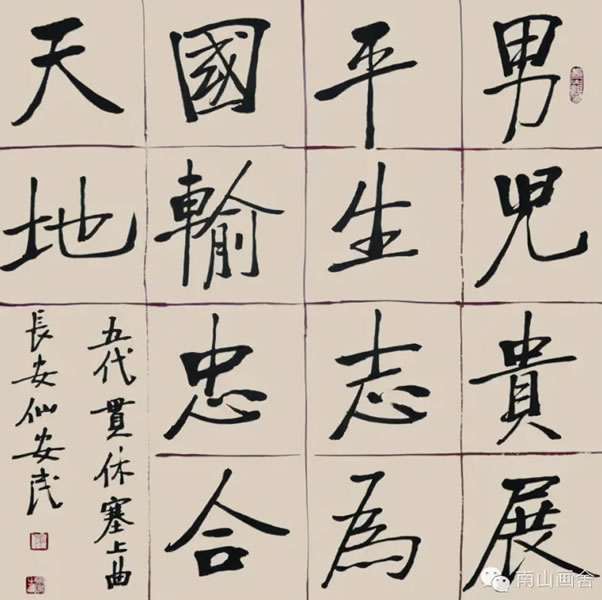 男兒貴展
平生志為
國輸忠合
天地
五代貫休塞上曲
長安仙安民
南山画舍